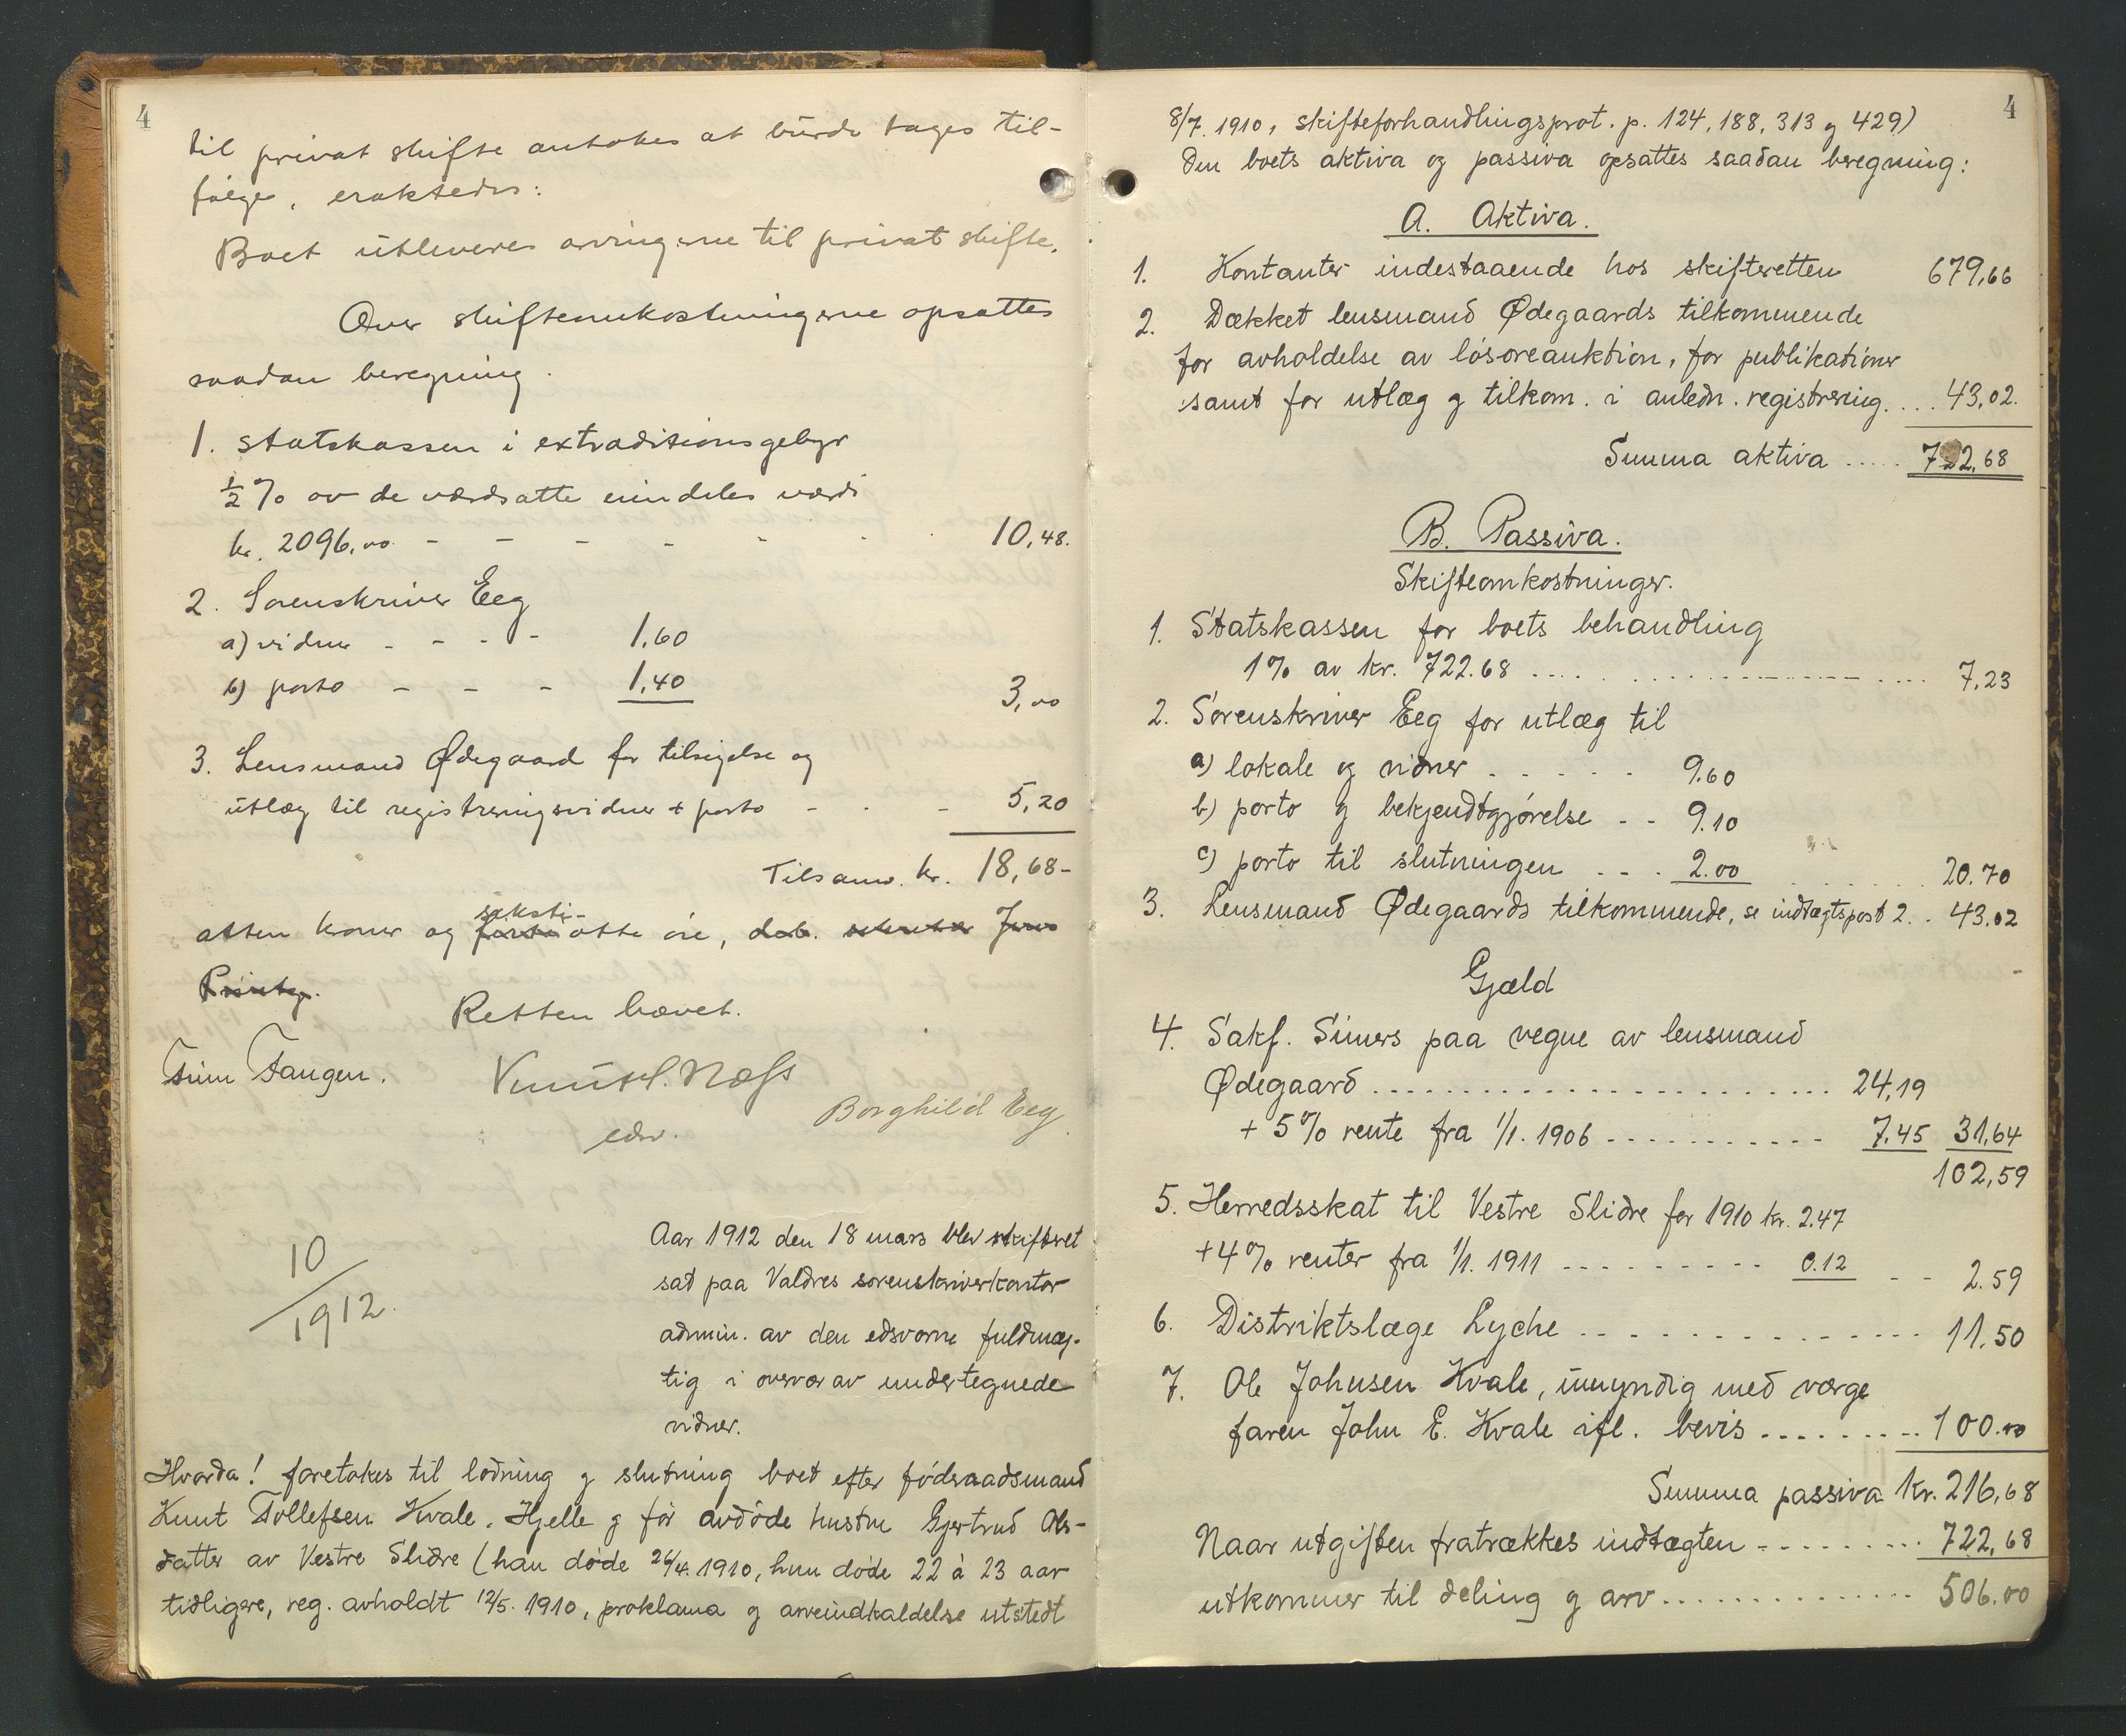 4
til privat skifte antokes at burde tages til-
følge, eraktedes:
Boet utleveres arvingerne til privat skifte.
Over skifteomkostningerne opsattes
saadan beregning.
1. Statskassen i extraditionsgebyr
½ % av de værdsatte eiendeles værdi
kr. 2096,00 - - - - - - 10,48.
2. Sorenskriver Eeg
a) vidner - - - - 1,60
b) porto - - - 1,40 3,00
3. Lensmand Ødegaard for tilsigelse og
utlæg til registreringsvidner + porto - - - 5,20
Tilsam. kr. 18,68-
seksti-
atten kroner og førti otte øre, deb. Jens
Retten hævet.
Trim Fangen. Knut H. Næss Borghild Eeg
edsv.
10/1912.
Aar 1912 den 18 mars blev skifteret
sat paa Valdres sorenskriverkontor
admin. av den edsvorne fuldmæg-
tig i overvær av undertegnede
vidner.
Hvorda! foretokes til lodning og slutning boet efter fødsraadsmand
Knut Tollefsen Kvale, Hjelle og før avdøde hustru Gjertrud Ols-
datter av Vestre Slidre (han døde 26/4. 1910, hun døde 22 à 23 aar
tidligere, reg. avholdt 12/5. 1910, proklama og arveindkaldelse utstedt
4
8/7. 1910, skifteforhandlingsprot. p. 124, 188, 313 og 429)
Den boets aktiva og passiva opsattes saadan beregning:
A. Aktiva.
1. Kontanter indestaaende hos skifteretten 679,66
2. Dækket lensmand Ødegaards tilkommende
for avholdelse av løsøreauktion, for publikationer
samt for utlæg og tilkom. i anledn. registrering.... 43,02.
Summa aktiva ..... 722,68
B. Passiva.
Skifteomkostninger.
1. Statskassen for boets behandling
1% av kr. 722.68 .......... 7,23
2. Sorenskriver Eeg for utlæg til
a) lokale og vidner . . . . . 9.60
b) porto og bekjendtgjørelse - - 9.10
c) porto til slutningen . . . . 2.00 . . . . . 20.70
3. Lensmand Ødegaards tilkommende, se indtægtspost 2. . 43.02
Gjæld
4. Sakf. Simers paa vegne av lensmand
Ødegaard .................... 24,19
+ 5% rente fra 1/1. 1906 - - - - - - - - - - - 7.45 31,64
102,59
5. Herredsskat til Vestre Slidre for 1910 kr. 2.47
+ 4% renter fra 1/1. 1911 - - - - - - - - - 0.12 - - 2.59
6. Distriktslæge Lyche - - - - - - - - - - - - - - - 11.50
7. Ole Johnsen Kvale, umyndig med værge
faren John E. Kvale ifl. bevis ......... 100.00
Summa passiva kr. 216,68
Naar utgiften fratrækkes indtægten - - - - - - - - - 722,68
utkommer til deling og arv .............. 506.00